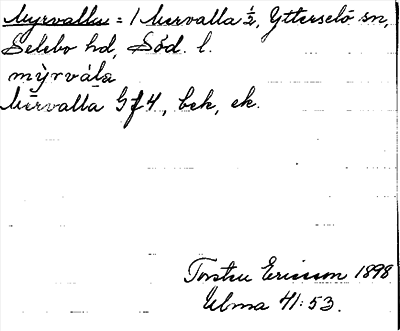 Myrvalla = 1 Mervalla ½, Ytterselö sn,
Selebo hd, Söd. l.
mỳrvála
Mervalla Gf 4, bek, ek.
Torsten Ericsson 1898
Ulma 41:53.